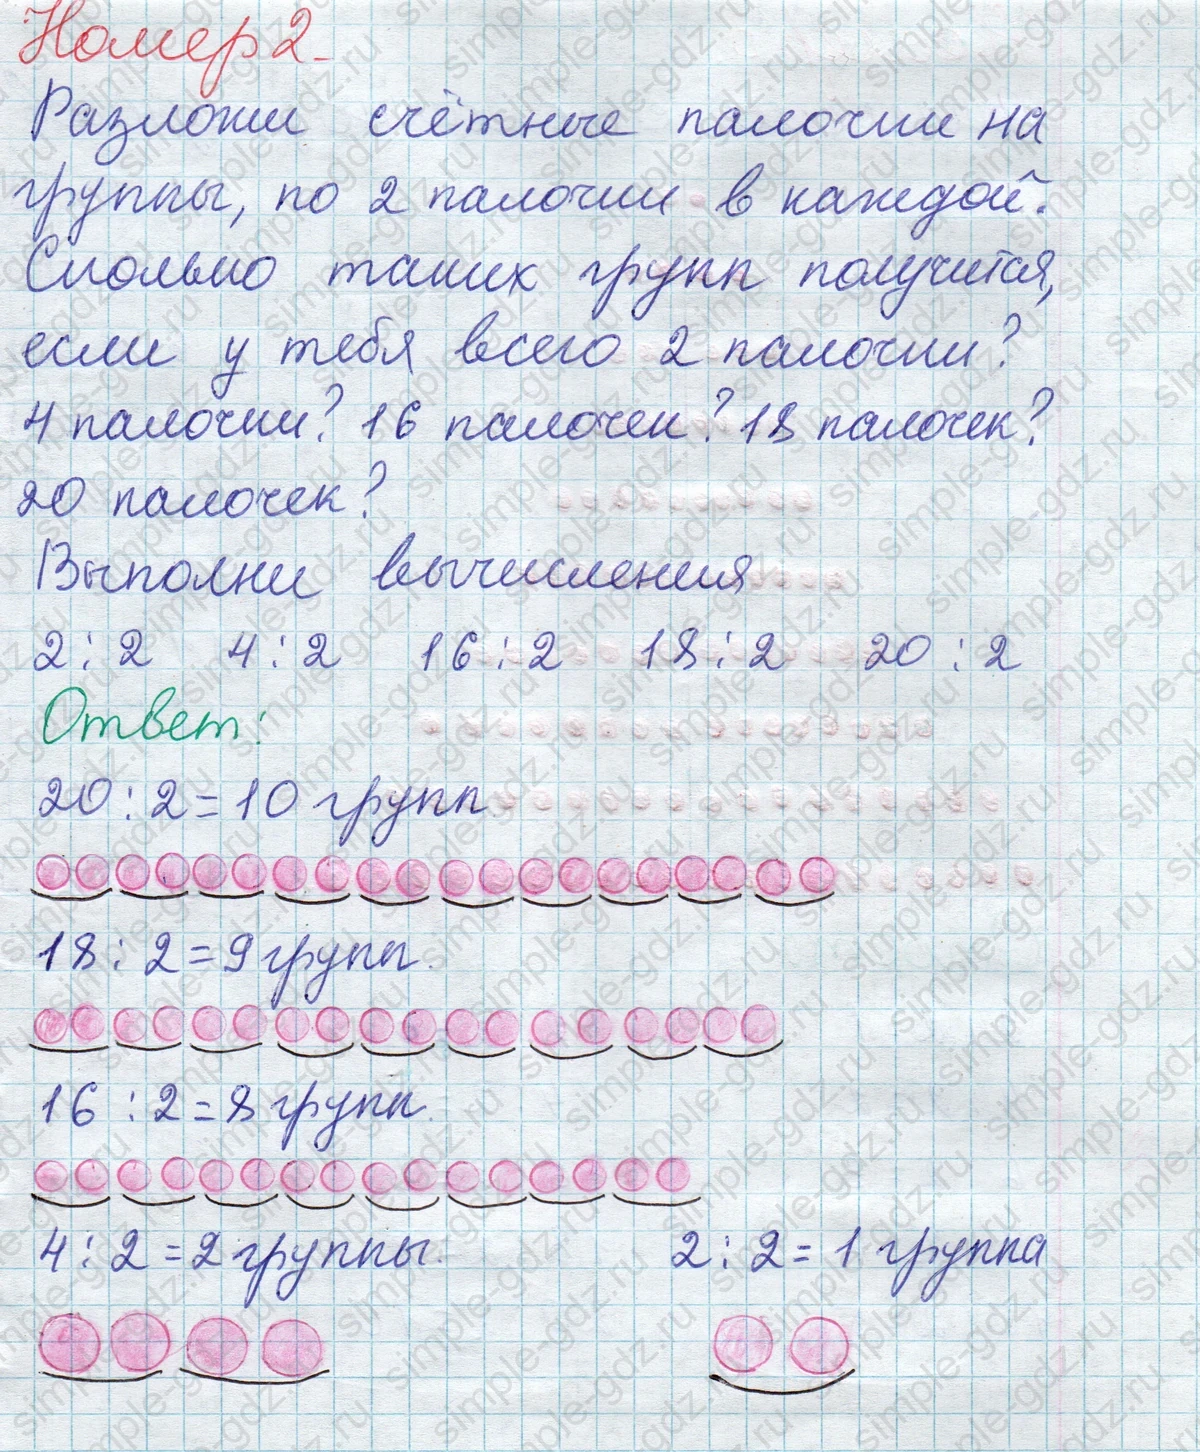 Номер 2.
Разложи счётные палочки на
группы, по 2 палочки в каждой.
Сколько таких групп получится,
если у тебя всего 2 палочки?
4 палочки? 16 палочек? 18 палочек?
20 палочек?
Выполни вычисления
2 : 2 4 : 2 16 : 2 18 : 2 20 : 2
Ответ:
20 : 2 = 10 групп
18 : 2 = 9 групп.
16 : 2 = 8 групп.
4 : 2 = 2 группы. 2 : 2 = 1 группа
simple-gdz.ru